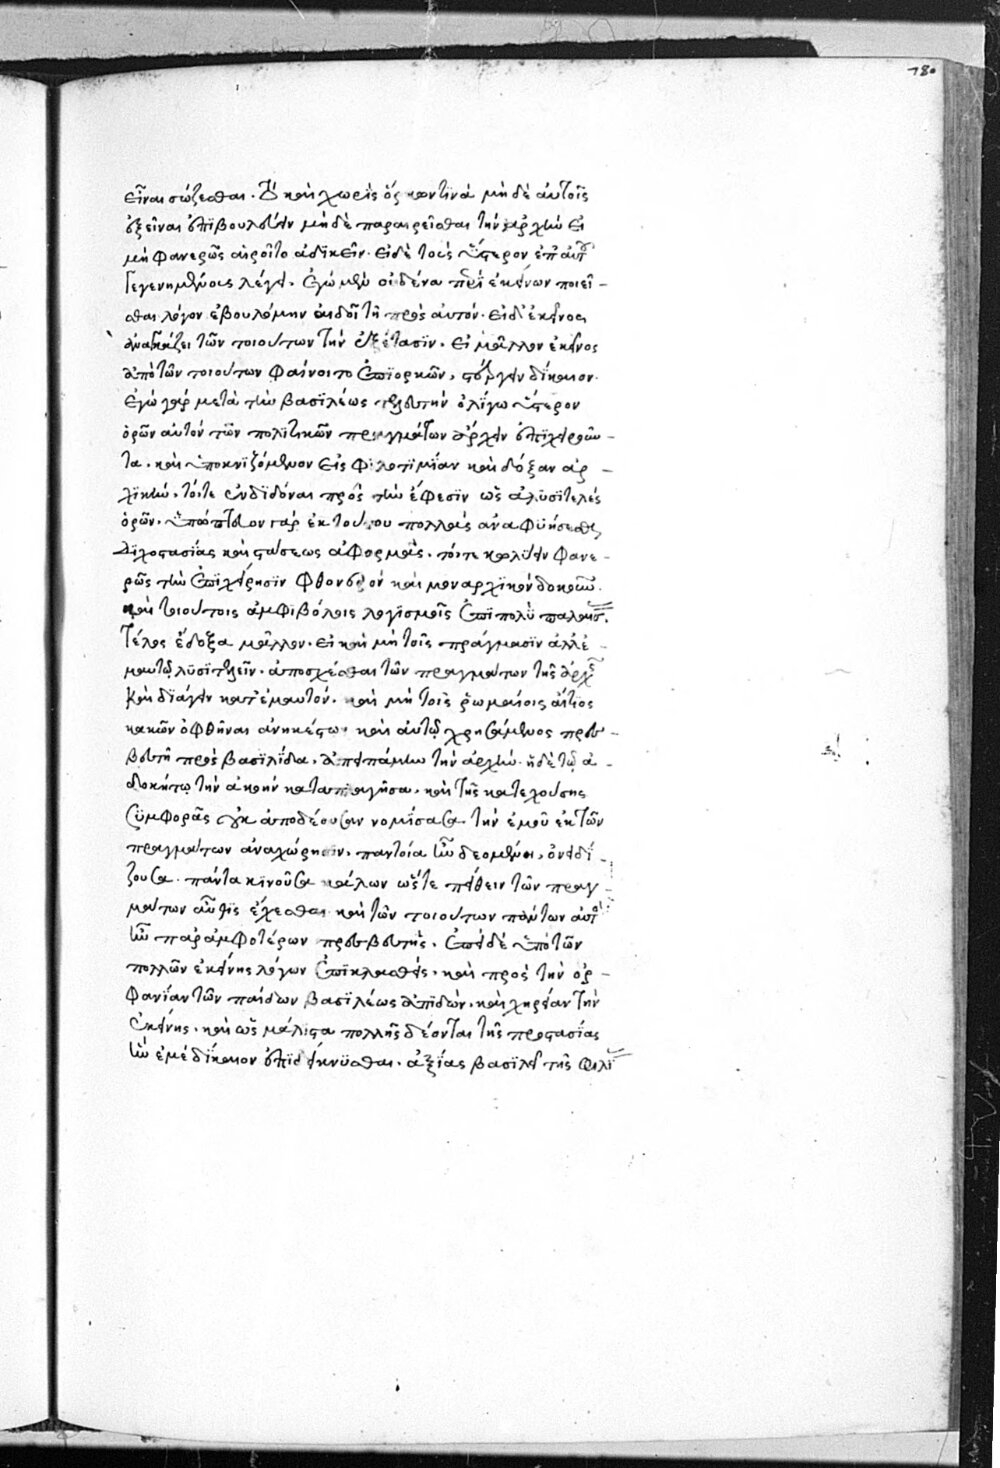 180
εἶναι σώζεσθαι. καὶ χωρὶς ὅρκων τινὰ μὴ δὲ αὐτοῖς
ἐξεῖναι ἐπιβουλεύειν μὴ δὲ παραιρεῖσθαι τὴν ἀρχὴν εἰ
μὴ φανερῶς αἱροῖτο ἀδικεῖν. εἰ δὲ τοὺς ὕστερον ἐπ αὐτ
γεγενημένους λέγει. ἐγὼ μὲν οὐδένα περὶ ἐκείνων ποιεῖ-
σθαι λόγον ἐβουλόμην αἰδοῖ τῇ πρὸς αὐτόν. εἰ δ' ἐκεῖνος
ἀναγκάζει τῶν τοιούτων τὴν ἐξέτασιν. εἰ μᾶλλον ἐκεῖνος
ἀπὸ τῶν τοιούτων φαίνοιτο ἐπιορκῶν, στέργειν δίκαιον.
ἐγὼ γὰρ μετὰ τὴν βασιλέως τελευτὴν ὀλίγω ὕστερον
ὁρῶν αὐτὸν τῶν πολιτικῶν πραγμάτων ἄρχειν ἐπιχειροῦν-
τα. καὶ ὑποκνιζόμενον εἰς φιλοτιμίαν καὶ δόξαν ἀρ-
χικὴν, τότε ἐνδιδόναι πρὸς τὴν ἔφεσιν ὡς ἀλυσιτελὲς
ὁρῶν. ὑπώπτευον γὰρ ἐκ τούτου πολλὰς ἀναφύησεσθαι
διχοστασίας καὶ στάσεως ἀφορμὰς. τότε κωλύειν φανε-
ρῶς τὴν ἐπιχείρησιν φθονερὸν καὶ μοναρχικὸν δοκοῦν.
καὶ τοιούτοις ἀμφιβόλοις λογισμοῖς ἐπὶ πολὺ παλαίσ.
τέλος ἔδοξα μᾶλλον. εἰ καὶ μὴ τοῖς πράγμασιν ἀλλ' ἐ-
μαυτῷ λυσιτελεῖν. ἀποσχέσθαι τῶν πραγμάτων τῆς ἀρχῆ
καὶ διάγειν κατ' ἐμαυτὸν. καὶ μὴ τοῖς ῥωμαίοις αἴτιος
κακῶν ὀφθῆναι ἀνηκέστων καὶ αὐτῷ χρησάμενος πρεσ-
βευτῆ πρὸς βασιλίδα, ἀπειπάμην τὴν ἀρχὴν. ἡ δὲ τῷ ἀ-
δοκήτῳ τὴν ἀκοὴν καταπλαγῆσα, καὶ τῆς κατεχούσης
συμφορᾶς οὐκ ἀποδέουσαν νομίσασα τὴν ἐμοῦ ἐκ τῶν
πραγμάτων ἀναχώρησιν. παντοία ἦν δεομένη, ὀνειδί-
ζουσα. πάντα κινοῦσα κάλων ὥστε πείθειν τῶν πραγ-
μάτων αὖθις ἔχεσθαι καὶ τῶν τοιούτων πάντων αὐτὸς
ἦν παρ' ἀμφοτέρων πρεσβευτὴς. ἐπεὶ δὲ ὑπὸ τῶν
πολλῶν ἐκείνης λόγων ἐπικλασθεὶς. καὶ πρὸς τὴν ὀρ-
φανίαν τῶν παίδων βασιλέως ἀπιδὼν. καὶ χηρείαν τὴν
ἐκείνης. καὶ ὡς μάλιστα πολλῆς δέονται τῆς προστασίας
ἦν ἐμὲ δίκαιον ἐπιδείκνυσθαι. ἀξίας βασιλεῖ τῆς φιλί